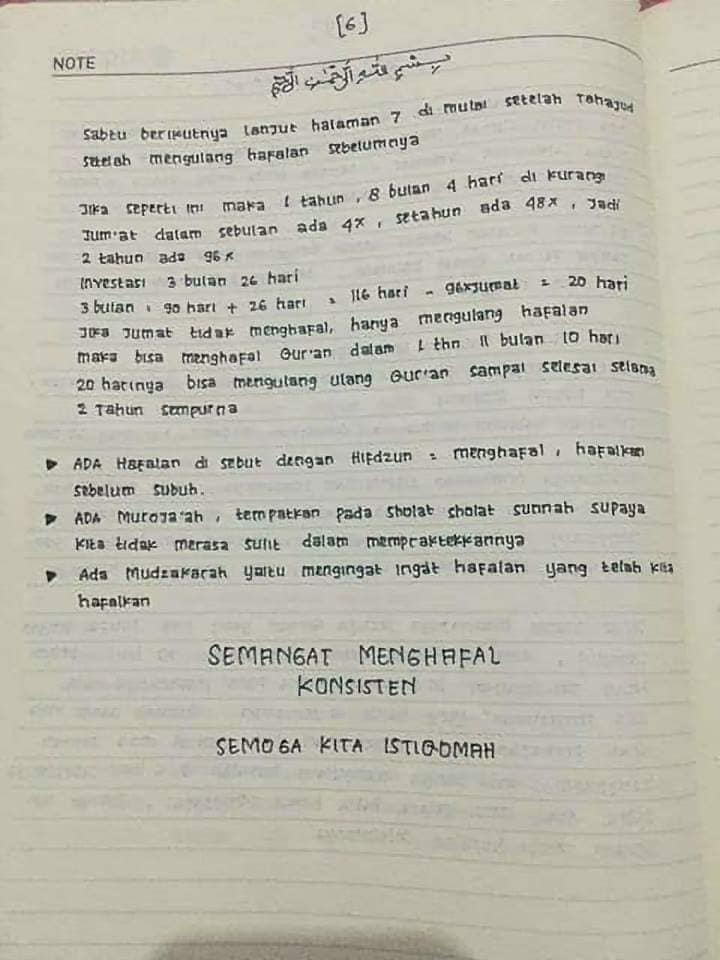 [6]
NOTE
بسم الله الرحمن الرحيم
Sabtu berikutnya lanjut halaman 7 di mulai setelah Tahajud
setelah mengulang hafalan sebelumnya
Jika seperti ini maka 1 tahun, 8 bulan 4 hari di kurangi
Jum'at dalam sebulan ada 4x, setahun ada 48x, Jadi
2 tahun ada 96x
Investasi 3 bulan 26 hari
3 bulan : 90 hari + 26 hari = 116 hari - 96xJumat = 20 hari
Jika Jumat tidak menghafal, hanya mengulang hafalan
maka bisa menghafal Qur'an dalam 1 thn 11 bulan 10 hari
20 harinya bisa mengulang ulang Qur'an sampai selesai selama
2 Tahun sempurna
► ADA Hafalan di sebut dengan Hifdzun = menghafal, hafalkan
sebelum subuh.
► ADA Muroja'ah, tempatkan pada sholat sholat sunnah supaya
kita tidak merasa sulit dalam mempraktekkannya
► Ada Mudzakarah yaitu mengingat ingat hafalan yang telah kita
hafalkan
SEMANGAT MENGHAFAL
KONSISTEN
SEMOGA KITA ISTIQOMAH